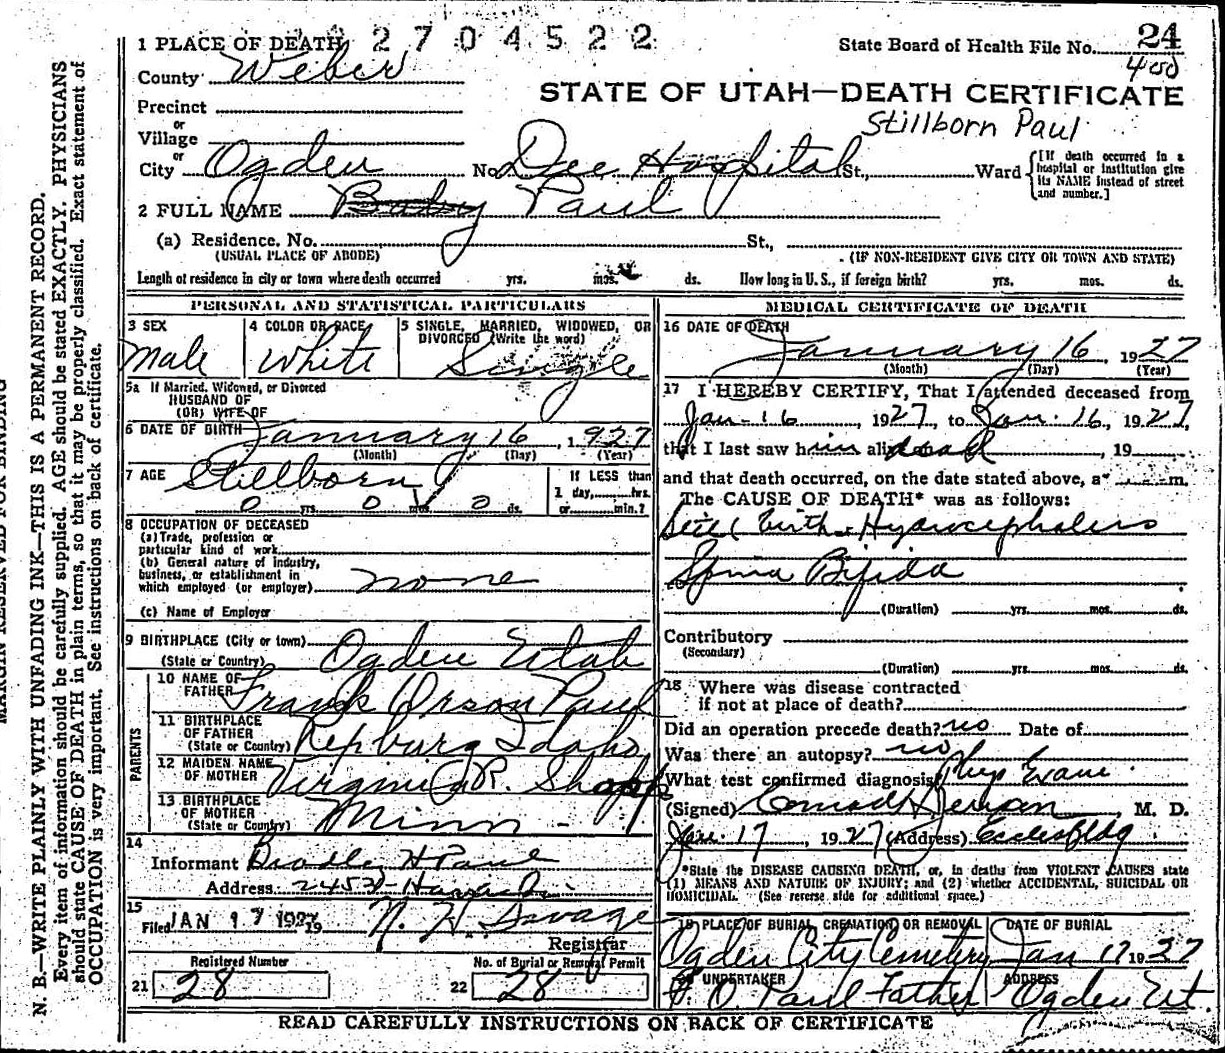 1 PLACE OF DEATH 2 7 0 4 5 2 2
State Board of Health File No. 24
400
County Weber
STATE OF UTAH—DEATH CERTIFICATE
Stillborn Paul
Precinct
or
Village
or
City Ogden No. Dee Hospital St., Ward [If death occurred in a hospital or institution give its NAME instead of street and number.]
2 FULL NAME Baby Paul
(a) Residence. No. St.,
(USUAL PLACE OF ABODE) (IF NON-RESIDENT GIVE CITY OR TOWN AND STATE)
Length of residence in city or town where death occurred yrs. mos. ds. How long in U. S., if foreign birth? yrs. mos. ds.
PERSONAL AND STATISTICAL PARTICULARS
3 SEX
Male
4 COLOR OR RACE
White
5 SINGLE, MARRIED, WIDOWED, OR
DIVORCED (Write the word)
Single
5a If Married, Widowed, or Divorced
HUSBAND OF
(OR) WIFE OF
6 DATE OF BIRTH January 16, 1927
(Month) (Day) (Year)
7 AGE Stillborn
0 yrs. 0 mos. 0 ds.
If LESS than
1 day, hrs.
or min.?
8 OCCUPATION OF DECEASED
(a) Trade, profession or
particular kind of work
(b) General nature of industry,
business, or establishment in
which employed (or employer) none
(c) Name of Employer
9 BIRTHPLACE (City or town)
(State or Country) Ogden Utah
PARENTS
10 NAME OF
FATHER Frank Orson Paul
11 BIRTHPLACE
OF FATHER
(State or Country) Rexburg Idaho
12 MAIDEN NAME
OF MOTHER Virginia R. Shopp
13 BIRTHPLACE
OF MOTHER
(State or Country) Minn -
14
Informant H Paul
Address 2452
15
Filed JAN 17 1927 19 N. H. Savage
Registrar
Registered Number
21 28
No. of Burial or Removal Permit
22 28
MEDICAL CERTIFICATE OF DEATH
16 DATE OF DEATH
January 16, 1927
(Month) (Day) (Year)
17 I HEREBY CERTIFY, That I attended deceased from
Jan - 16, 1927, to Jan. 16, 1927,
that I last saw him alive dead, 19
and that death occurred, on the date stated above, at m.
The CAUSE OF DEATH* was as follows:
Still birth - Hydrocephalus
Spina Bifida
(Duration) yrs. mos. ds.
Contributory
(Secondary)
(Duration) yrs. mos. ds.
18 Where was disease contracted
if not at place of death?
Did an operation precede death? no Date of
Was there an autopsy? no
What test confirmed diagnosis Phys Exam.
(Signed) Conrad Jenson M. D.
Jan. 17, 1927 (Address) Eccles Bldg.
*State the DISEASE CAUSING DEATH, or, in deaths from VIOLENT CAUSES state
(1) MEANS AND NATURE OF INJURY; and (2) whether ACCIDENTAL, SUICIDAL OR
HOMICIDAL. (See reverse side for additional space.)
19 PLACE OF BURIAL, CREMATION, OR REMOVAL
Ogden City Cemetery
DATE OF BURIAL
Jan 17 1927
UNDERTAKER
F. O. Paul Father
ADDRESS
Ogden Ut
READ CAREFULLY INSTRUCTIONS ON BACK OF CERTIFICATE
MARGIN RESERVED FOR BINDING
N. B.—WRITE PLAINLY WITH UNFADING INK—THIS IS A PERMANENT RECORD.
Every item of information should be carefully supplied. AGE should be stated EXACTLY. PHYSICIANS
should state CAUSE OF DEATH in plain terms, so that it may be properly classified. Exact statement of
OCCUPATION is very important. See instructions on back of certificate.